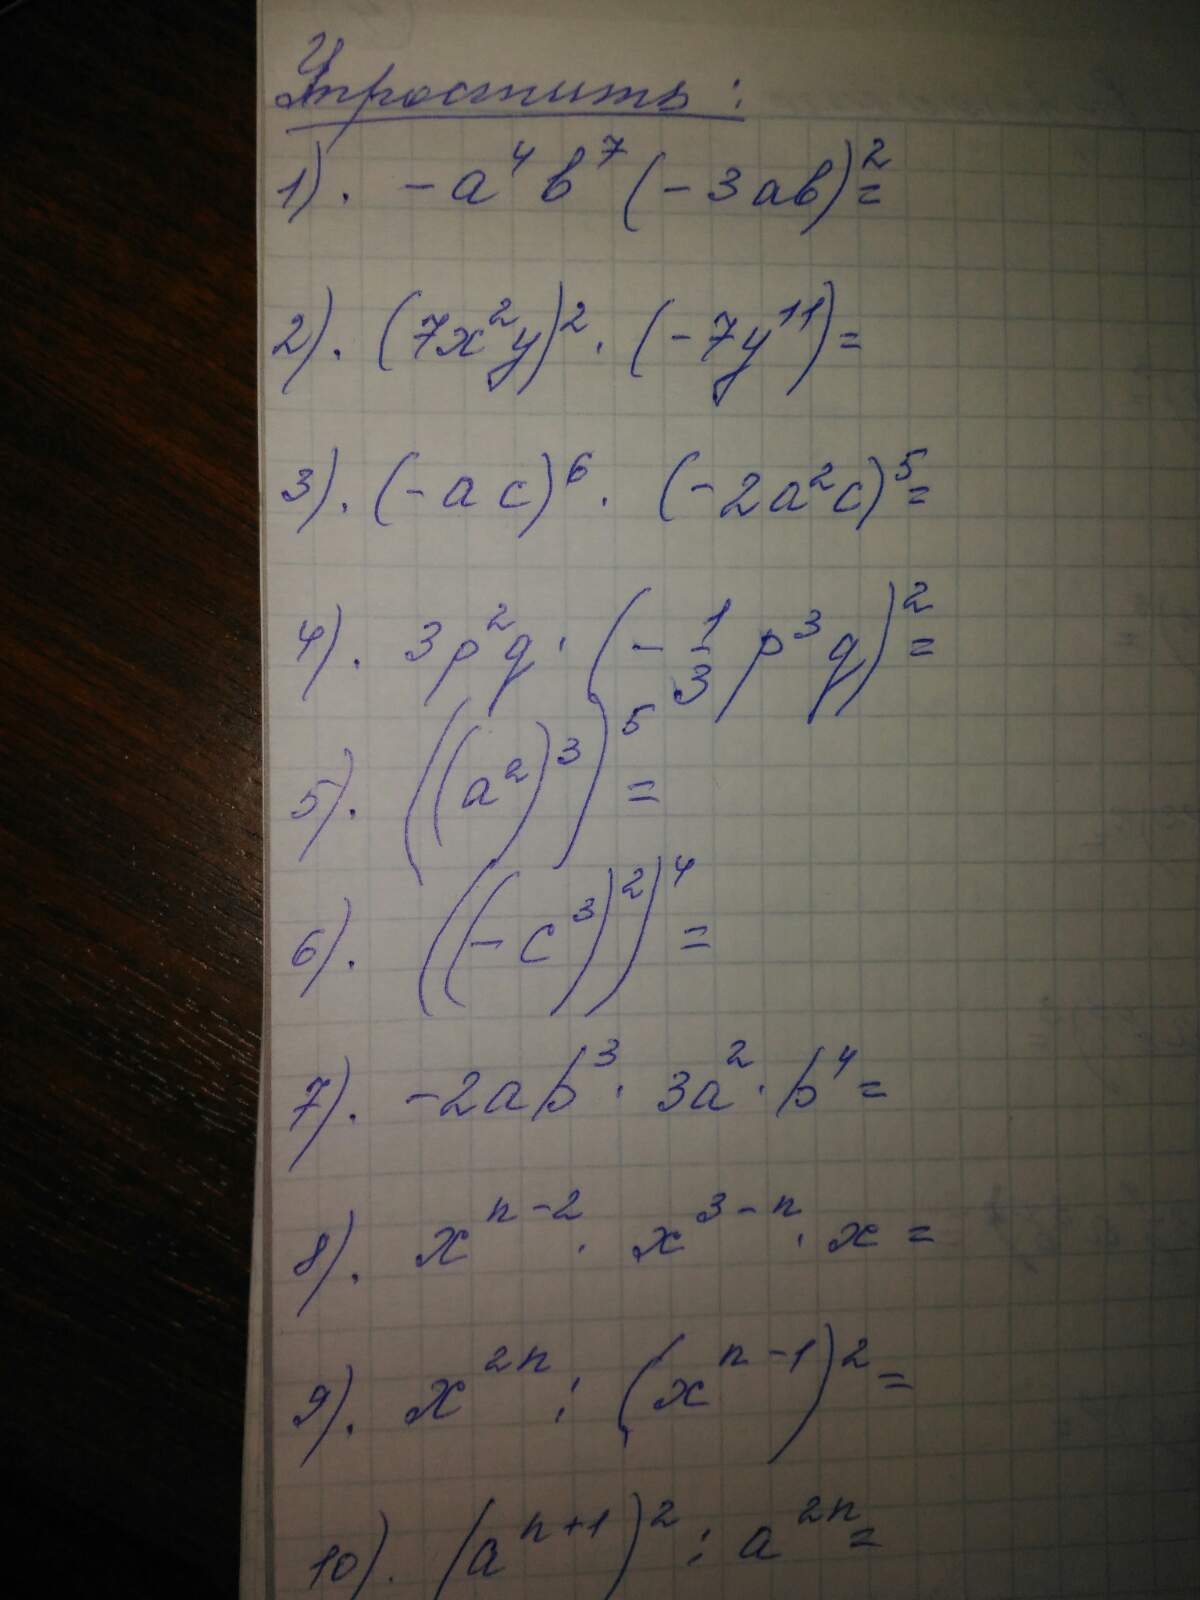 Упростить:
1). -a⁴b⁷(-3ab)²=
2). (7x²y)² · (-7y¹¹)=
3). (-ac)⁶ · (-2a²c)⁵=
4). 3p²q · (-1/3 p³q)²=
5). ((a²)³)⁵=
6). ((-c³)²)⁴=
7). -2ab³ · 3a² · b⁴=
8). xⁿ⁻² · x³⁻ⁿ · x=
9). x²ⁿ : (xⁿ⁻¹)²=
10). (aⁿ⁺¹)² : a²ⁿ=